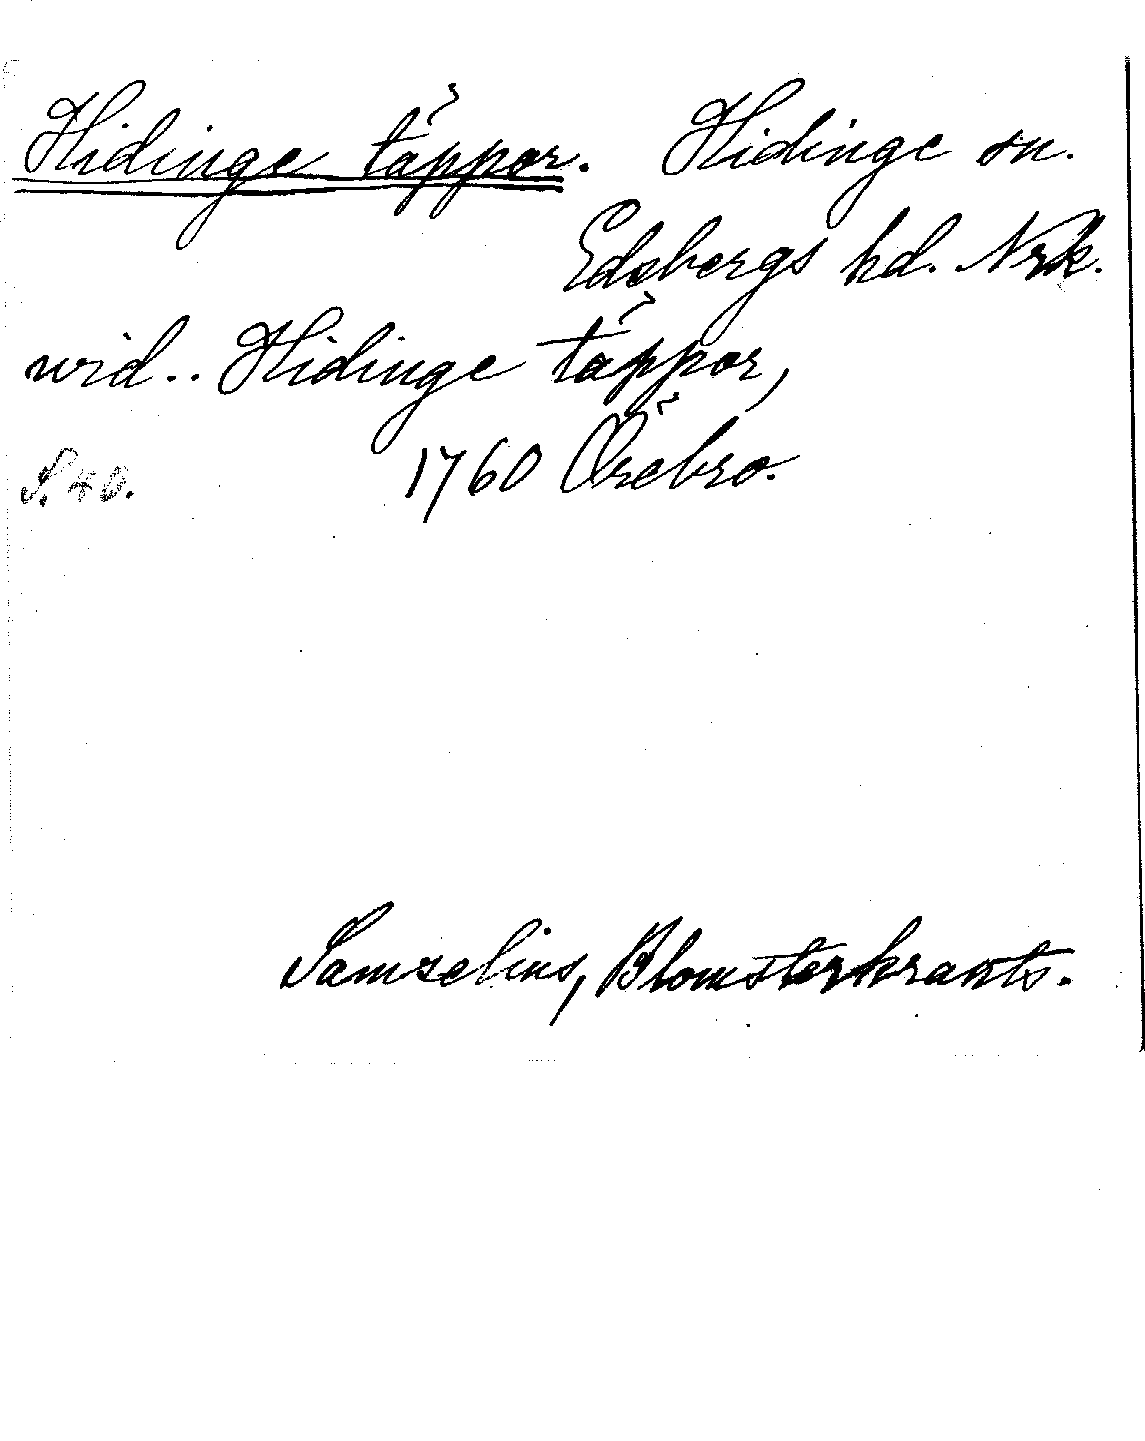 Hidinge täppor. Hidinge sn.
Edsbergs hd. Nrk.
wid.. Hidinge täppor,
S. 40. 1760 Örebro.
Samzelius, Blomsterkrants.